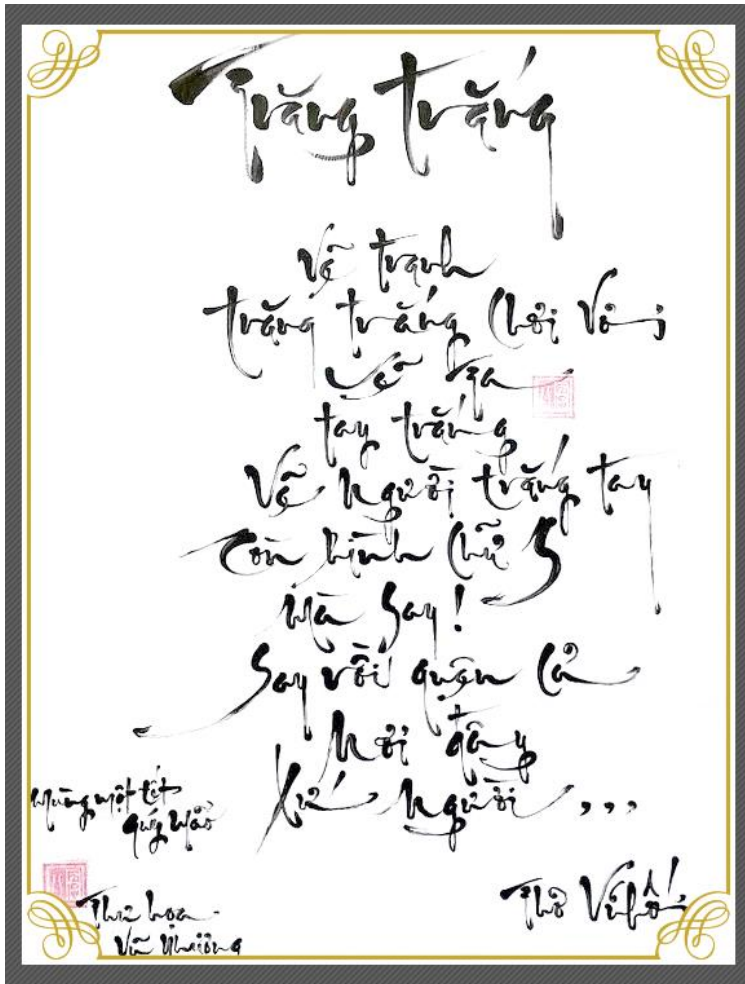 Trăng trắng
Vẽ tranh
trăng trắng Chơi Vơi
Vẽ Ta
tay trắng
Vẽ Người trắng tay
Còn hình Chữ S
Mà Say!
Say rồi quên Cả
Nơi đây
Xứ Người,,,
Mùng một tết
quý Mão
Thơ
Thư họa
Vũ